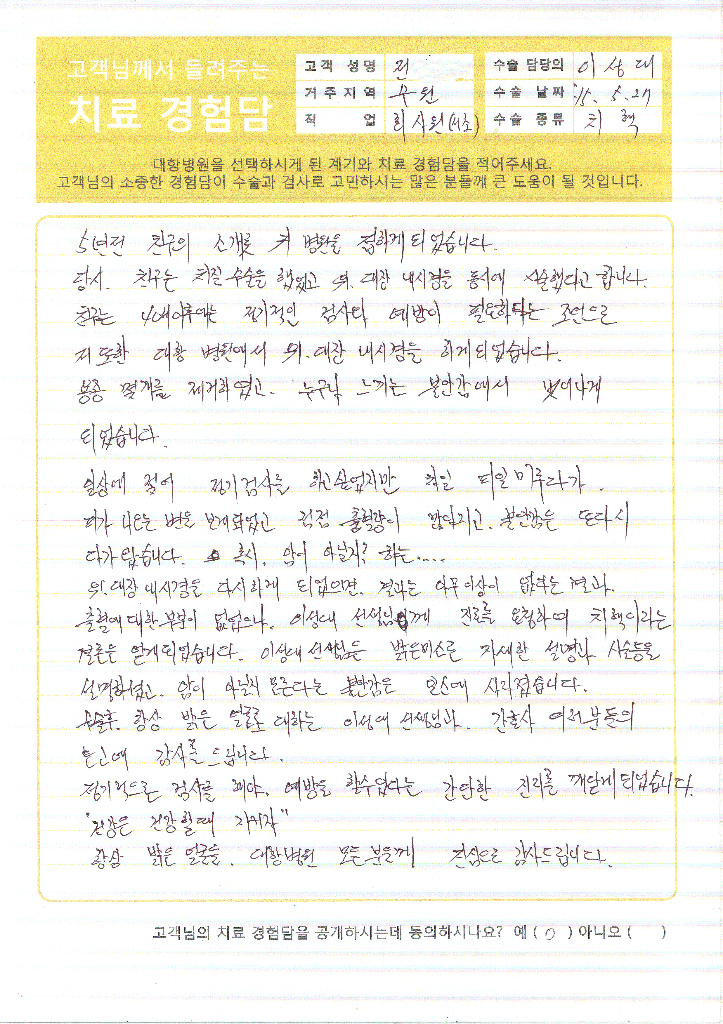 고객님께서 들려주는
치료 경험담
고객 성명 전
거주지역 수원
직 업 회사원(서초)
수술 담당의 이상대
수술 날짜 '15. 5. 27
수술 종류 치핵
대항병원을 선택하시게 된 계기와 치료 경험담을 적어주세요.
고객님의 소중한 경험담이 수술과 검사로 고민하시는 많은 분들께 큰 도움이 될 것입니다.
5년전 친구의 소개로 귀 병원을 접하게 되었습니다.
당시. 친구는 치질 수술을 했었고 위.대장 내시경을 동시에 시술했다고 합니다.
친구는 40세이후에는 정기적인 검사와 예방이 필요하다는 조언으로
저 또한 대항 병원에서 위.대장 내시경을 하게 되었습니다.
용종 몇개를 제거하였고. 누구나 느끼는 불안감에서 벗어나게
되었습니다.
일상에 젖어 정기검사를 하고 싶었지만 차일 피일 미루다가.
피가 나오는 변을 보게되었고 직접 출혈량이 많아지고. 불안감은 또다시
다가 왔습니다. 혹시. 암이 아닐까? 하는....
위.대장 내시경을 다시하게 되었으며. 결과는 아무이상이 없다는 결과.
출혈에 대한 부분이 없었으나. 이상대 선생님께 진료를 요청하여 치핵이라는
결론은 얻게되었습니다. 이상대 선생님은 밝은미소로 자세한 설명과 시술등을
설명하셨고. 암이 아닐지 모른다는 불안감은 일순에 사라졌습니다.
수술후. 항상 밝은 얼굴로 대하는 이상대 선생님과. 간호사 여러분들의
노고에 감사를 드립니다.
정기적으로 검사를 해야. 예방을 할수있다는 간단한 진리를 깨닫게되었습니다.
"건강은 건강할때 지키자"
항상 밝은 얼굴을. 대항병원 모든 분들께 진심으로 감사드립니다.
고객님의 치료 경험담을 공개하시는데 동의하시나요? 예 ( O ) 아니오 ( )